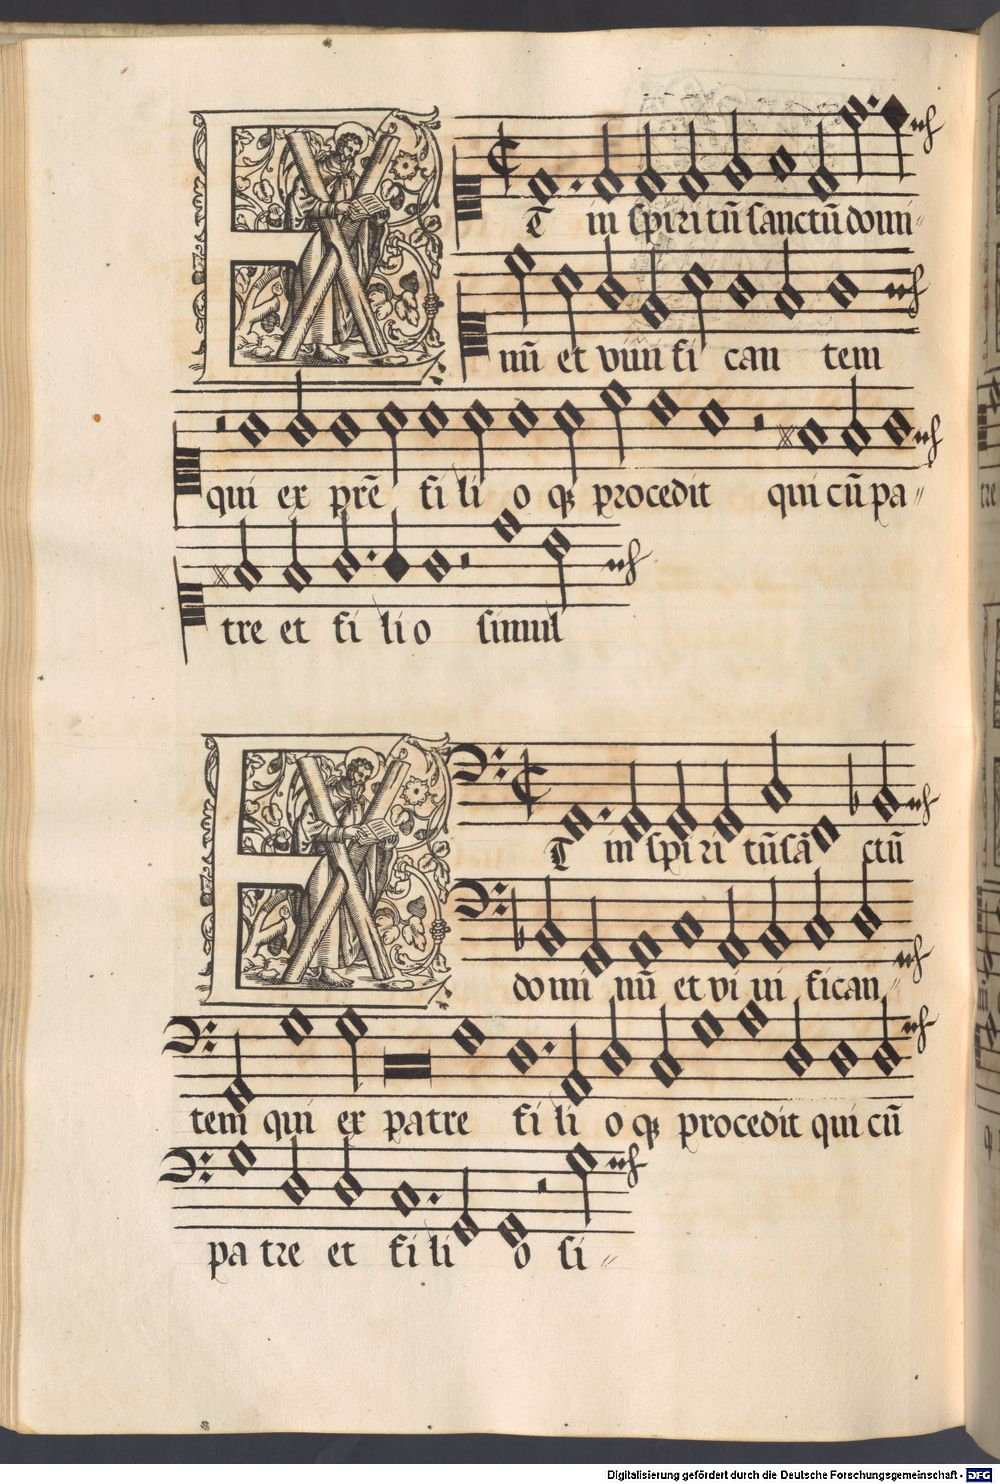 ET in spiritū sanctū domi〃
nū et viui fi can tem
qui ex prē fi li o qꝫ procedit qui cū pa〃
tre et fi li o simul
ET in spi ri tū sā ctū
do mi nū et vi ui fican〃
tem qui ex patre fi li o qꝫ procedit qui cū
pa tre et fi li o si〃
Digitalisierung gefördert durch die Deutsche Forschungsgemeinschaft - DFG